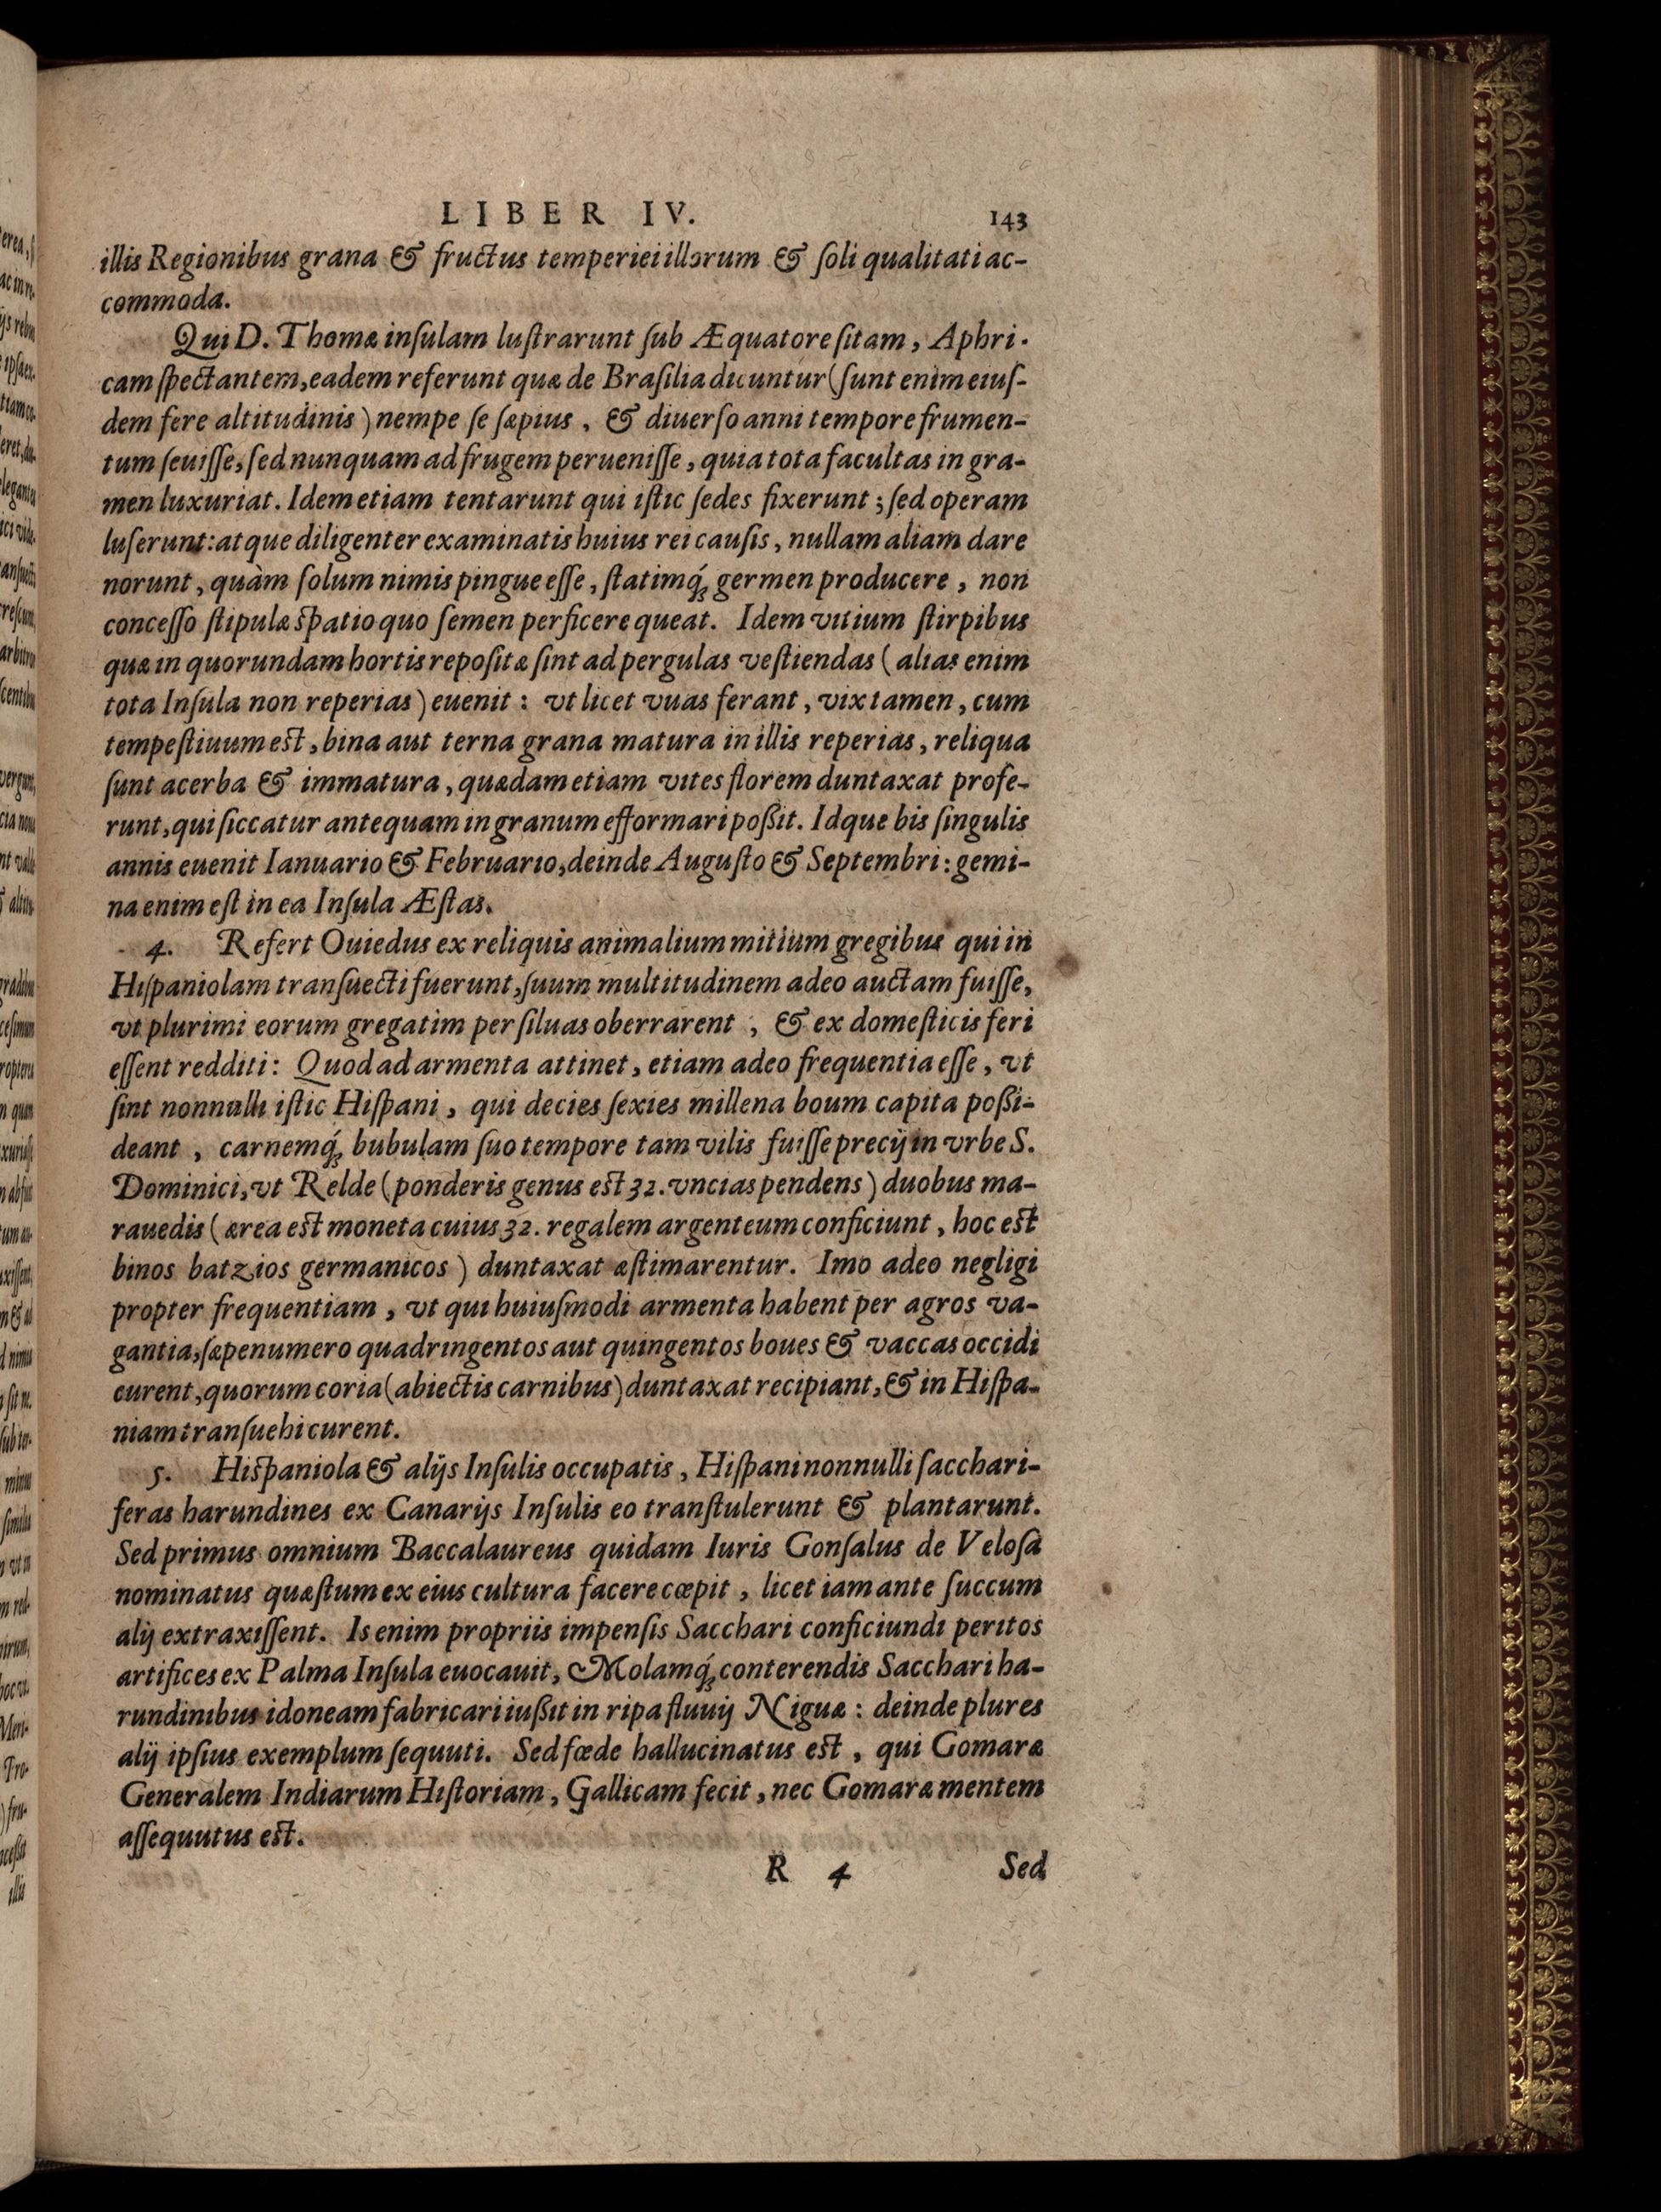 LIBER IV. 143
illis Regionibus grana & fructus temperiei illorum & ſoli qualitati ac-
commoda.
Qui D. Thomæ inſulam luſtrarunt ſub Æquatore ſitam, Aphri-
cam ſpectantem, eadem referunt quæ de Braſilia dicuntur (ſunt enim eiuſ-
dem fere altitudinis) nempe ſe ſæpius, & diuerſo anni tempore frumen-
tum ſeuiſſe, ſed nunquam ad frugem perueniſſe, quia tota facultas in gra-
men luxuriat. Idem etiam tentarunt qui iſtic ſedes fixerunt; ſed operam
luſerunt: atque diligenter examinatis huius rei cauſis, nullam aliam dare
norunt, quàm ſolum nimis pingue eſſe, ſtatimq́ꝫ germen producere, non
conceſſo ſtipulæ ſpatio quo ſemen perficere queat. Idem vitium ſtirpibus
quæ in quorundam hortis repoſitæ ſint ad pergulas veſtiendas (alias enim
tota Inſula non reperias) euenit: vt licet vuas ferant, vix tamen, cum
tempeſtiuum eſt, bina aut terna grana matura in illis reperias, reliqua
ſunt acerba & immatura, quædam etiam vites florem duntaxat profe-
runt, qui ſiccatur antequam in granum efformari poßit. Idque bis ſingulis
annis euenit Ianuario & Februario, deinde Auguſto & Septembri: gemi-
na enim eſt in ea Inſula Æſtas.
4. Refert Ouiedus ex reliquis animalium mitium gregibus qui in
Hiſpaniolam tranſuecti fuerunt, ſuum multitudinem adeo auctam fuiſſe,
vt plurimi eorum gregatim per ſiluas oberrarent, & ex domeſticis feri
eſſent redditi: Quod ad armenta attinet, etiam adeo frequentia eſſe, vt
ſint nonnulli iſtic Hiſpani, qui decies ſexies millena boum capita poßi-
deant, carnemq́ꝫ bubulam ſuo tempore tam vilis fuiſſe precij in vrbe S.
Dominici, vt Relde (ponderis genus eſt 32. vncias pendens) duobus ma-
rauedis (ærea eſt moneta cuius 32. regalem argenteum conficiunt, hoc eſt
binos batzios germanicos) duntaxat æſtimarentur. Imo adeo negligi
propter frequentiam, vt qui huiuſmodi armenta habent per agros va-
gantia, ſæpenumero quadringentos aut quingentos boues & vaccas occidi
curent, quorum coria (abiectis carnibus) duntaxat recipiant, & in Hiſpa-
niam tranſuehi curent.
5. Hiſpaniola & alijs Inſulis occupatis, Hiſpani nonnulli ſacchari-
feras harundines ex Canarijs Inſulis eo tranſtulerunt & plantarunt.
Sed primus omnium Baccalaureus quidam Iuris Gonſalus de Veloſa
nominatus quæſtum ex eius cultura facere cœpit, licet iam ante ſuccum
alij extraxiſſent. Is enim propriis impenſis Sacchari conficiundi peritos
artifices ex Palma Inſula euocauit, Molamq́ꝫ conterendis Sacchari ha-
rundinibus idoneam fabricari iußit in ripa fluuij Niguæ: deinde plures
alij ipſius exemplum ſequuti. Sed fœde hallucinatus eſt, qui Gomaræ
Generalem Indiarum Hiſtoriam, Gallicam fecit, nec Gomaræ mentem
aſſequutus eſt.
R 4 Sed